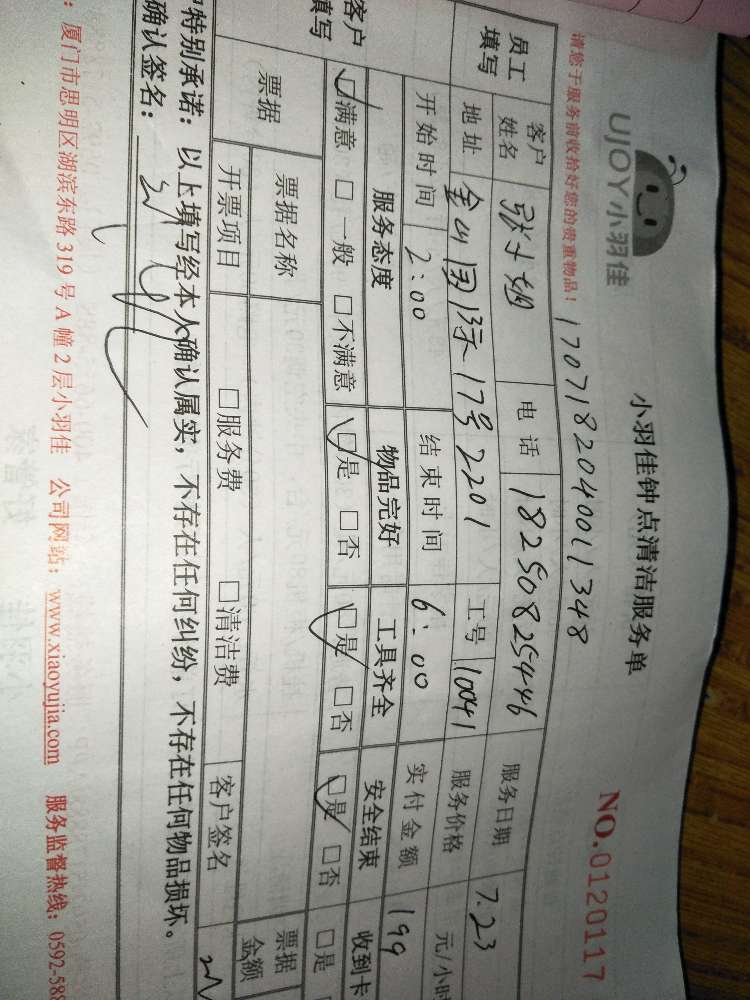 UJOY小羽佳
小羽佳钟点清洁服务单
NO.0120117
请您于服务前收拾好您的贵重物品!
1707182040011348
员工填写
客户姓名 张小姐 电话 18250825446 服务日期 7.23
地址 金山国际17号2201 工号 10041 服务价格 元/小时
开始时间 2:00 结束时间 6:00 实付金额 199
客户填写
服务态度 物品完好 工具齐全 安全结束 收到卡
□满意 □一般 □不满意 □是 □否 □是 □否 □是 □否 □是
票据 票据名称 □服务费 □清洁费 票据金额
开票项目 客户签名
特别承诺:以上填写经本人确认属实,不存在任何纠纷,不存在任何物品损坏。
确认签名:
厦门市思明区湖滨东路319号A幢2层小羽佳 公司网站:www.xiaoyujia.com 服务监督热线:0592-588